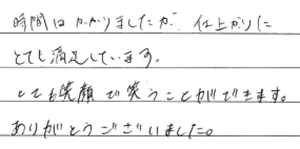 時間はかかりましたが、仕上がりに
とても満足しています。
とても笑顔で笑うことができます。
ありがとうございました。